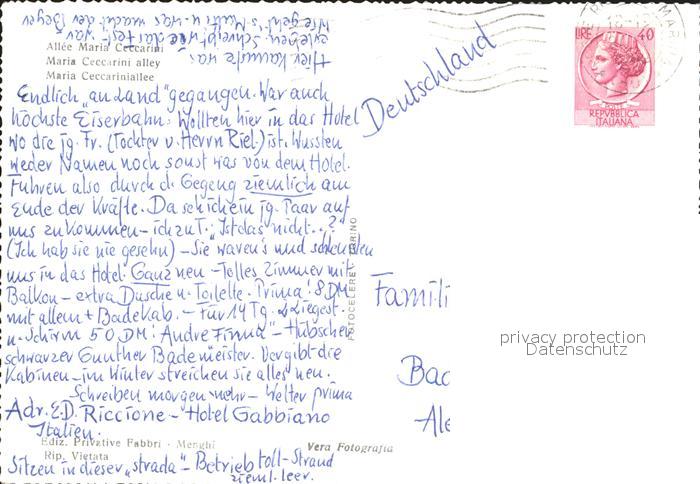 Hier kannste was
erleben. Schreibt wie das Fest war
Wie geht's Mutti u. was macht der Beyer
Allée Maria Ceccarini
Maria Ceccarini alley
Maria Ceccariniallee
Endlich „an Land" gegangen. War auch
höchste Eiserbahn. Wollten hier in das Hotel
wo die jg. Fr. (Tochter v. Herrn Riel.) ist. Wussten
weder Namen noch sonst was von dem Hotel.
Fuhren also durch d. Gegeng ziemlich am
Ende der Kräfte. Da seh ich ein jg. Paar auf
uns zukommen – ich zu T.: „Ist das nicht..?
(Ich hab sie nie gesehn) – Sie waren's und
uns in das Hotel. Ganz neu – Tolles Zimmer mit
Balkon – extra Dusche u. Toilette. Prima! 8 DM
mit allem + Badekab. – Für 14 Tg. 2 Liegest.
u. Schirm 50 DM! Andre Finna" – Hübscher
schwarzer Gunther Bademeister. Vergibt die
Kabinen – im Winter streichen sie alles neu.
Schreiben morgen mehr – Wetter prima
Adr. E.D. Riccione – Hotel Gabbiano
Italien.
Ediz. Privative Fabbri - Menghi
Rip. Vietata
Vera Fotografia
Sitzen in dieser „strada" – Betrieb toll – Strand
zieml. leer.
FOTOCELERE TORINO
Deutschland
LIRE 40
REPVBBLICA
ITALIANA
Famili
Bad
Ale
privacy protection
Datenschutz